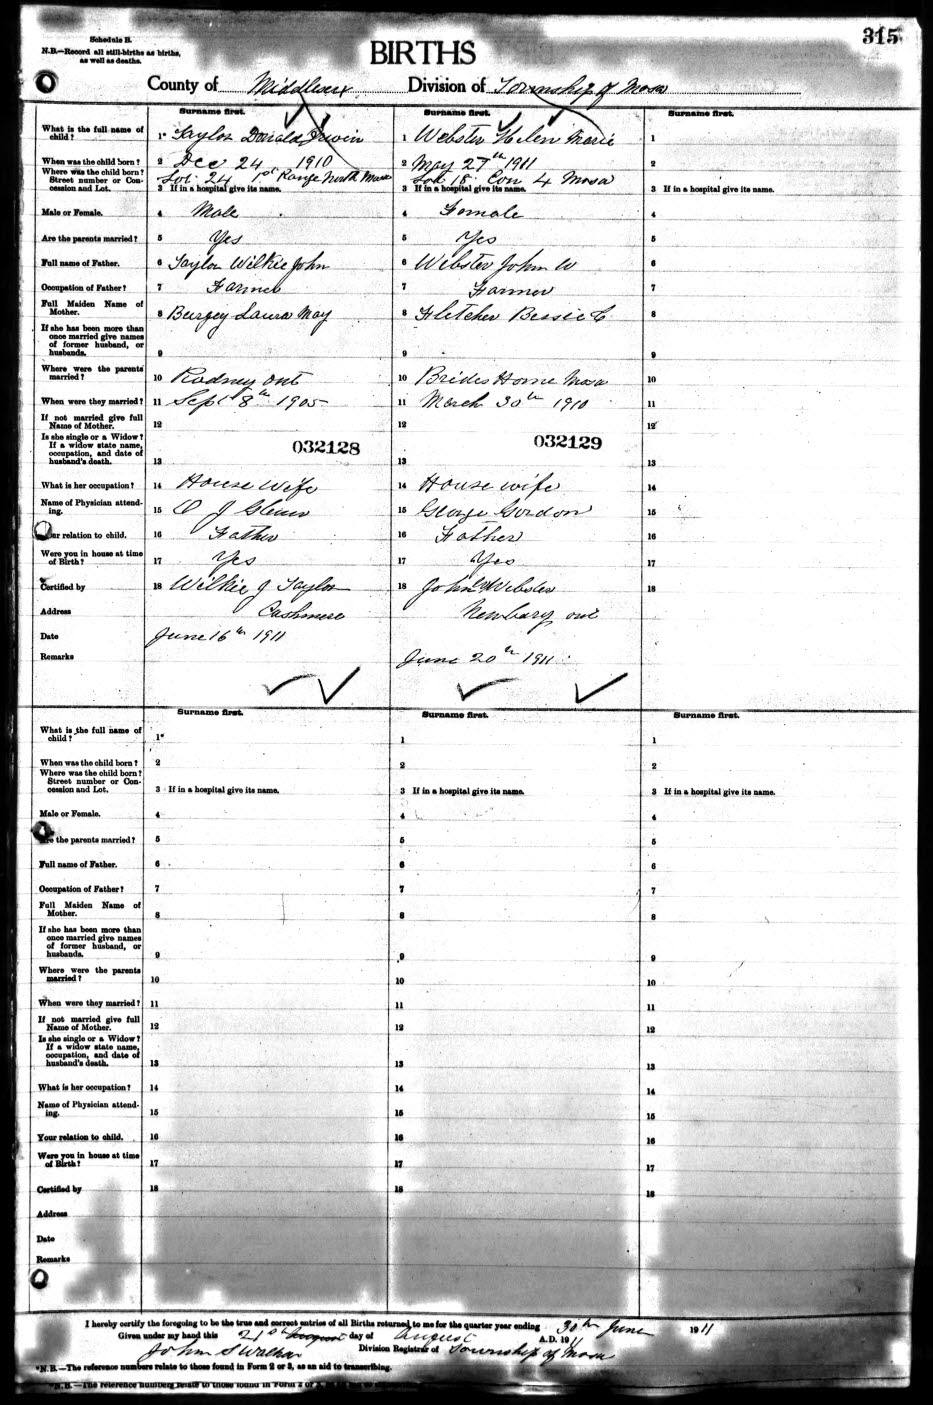 315
Schedule B.
N.B.—Record all still-births as births,
as well as deaths.
BIRTHS
County of Middlesex Division of Township of Mosa
Surname first. Surname first. Surname first.
What is the full name of child? 1* Taylor Donald Irwin 1 Webster Helen Marie 1
When was the child born? 2 Dec 24 1910 2 May 27th 1911 2
Where was the child born? Street number or Concession and Lot. Lot 24 1st Range North Mosa Lot 18 Con 4 Mosa
3 If in a hospital give its name. 3 If in a hospital give its name. 3 If in a hospital give its name.
Male or Female. 4 Male 4 Female 4
Are the parents married? 5 Yes 5 Yes 5
Full name of Father. 6 Taylor Wilkie John 6 Webster John W 6
Occupation of Father? 7 Farmer 7 Farmer 7
Full Maiden Name of Mother. 8 Laura May 8 Fletcher Bessie C 8
If she has been more than once married give names of former husband, or husbands. 9 9 9
Where were the parents married? 10 Rodney Ont 10 Brides Home Mosa 10
When were they married? 11 Sept 8th 1905 11 March 30th 1910 11
If not married give full Name of Mother. 12 12 12
Is she single or a Widow? If a widow state name, occupation, and date of husband's death. 13 032128 13 032129 13
What is her occupation? 14 House Wife 14 House wife 14
Name of Physician attending. 15 15 George Gordon 15
relation to child. 16 Father 16 Father 16
Were you in house at time of Birth? 17 Yes 17 Yes 17
Certified by 18 Wilkie J Taylor 18 John W Webster 18
Address Cashmere Newbury Ont
Date June 16th 1911
Remarks June 20th 1911
Surname first. Surname first. Surname first.
What is the full name of child? 1* 1 1
When was the child born? 2 2 2
Where was the child born? Street number or Concession and Lot. 3 If in a hospital give its name. 3 If in a hospital give its name. 3 If in a hospital give its name.
Male or Female. 4 4 4
the parents married? 5 5 5
Full name of Father. 6 6 6
Occupation of Father? 7 7 7
Full Maiden Name of Mother. 8 8 8
If she has been more than once married give names of former husband, or husbands. 9 9 9
Where were the parents married? 10 10 10
When were they married? 11 11 11
If not married give full Name of Mother. 12 12 12
Is she single or a Widow? If a widow state name, occupation, and date of husband's death. 13 13 13
What is her occupation? 14 14 14
Name of Physician attending. 15 15 15
Your relation to child. 16 16 16
Were you in house at time of Birth? 17 17 17
Certified by 18 18 18
Address
Date
Remarks
I hereby certify the foregoing to be the true and correct entries of all Births returned to me for the quarter year ending 30th June 1911
Given under my hand this 21st August day of August A.D. 1911
John S Walker Division Registrar of Township of Mosa
*N.B.—The reference numbers relate to those found in Form 2 or 3, as an aid to transcribing.
*N.B.—The reference numbers relate to those found in Form 2